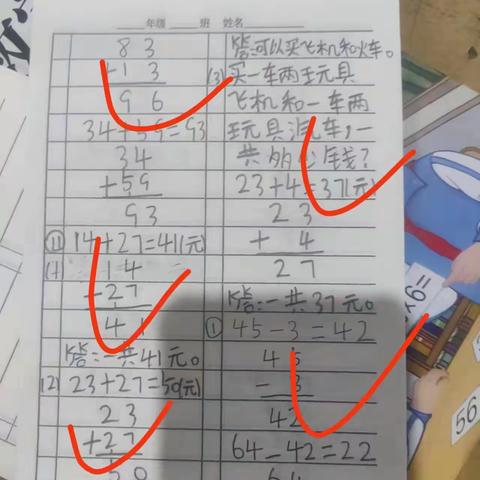 年级 班 姓名
83
+13
96
34+59=93
34
+59
93
(1) 14+27=41(元)
14
+27
41
答:一共41元。
(2) 23+27=50(元)
23
+27
50
答:可以买飞机和火车。
(3) 买一车两玩具
飞机和一车两
玩具汽车,一
共的多少钱?
23+4=37(元)
23
+ 4
27
答:一共37元。
① 45-3=42
45
- 3
42
64-42=22
64
×6=
56